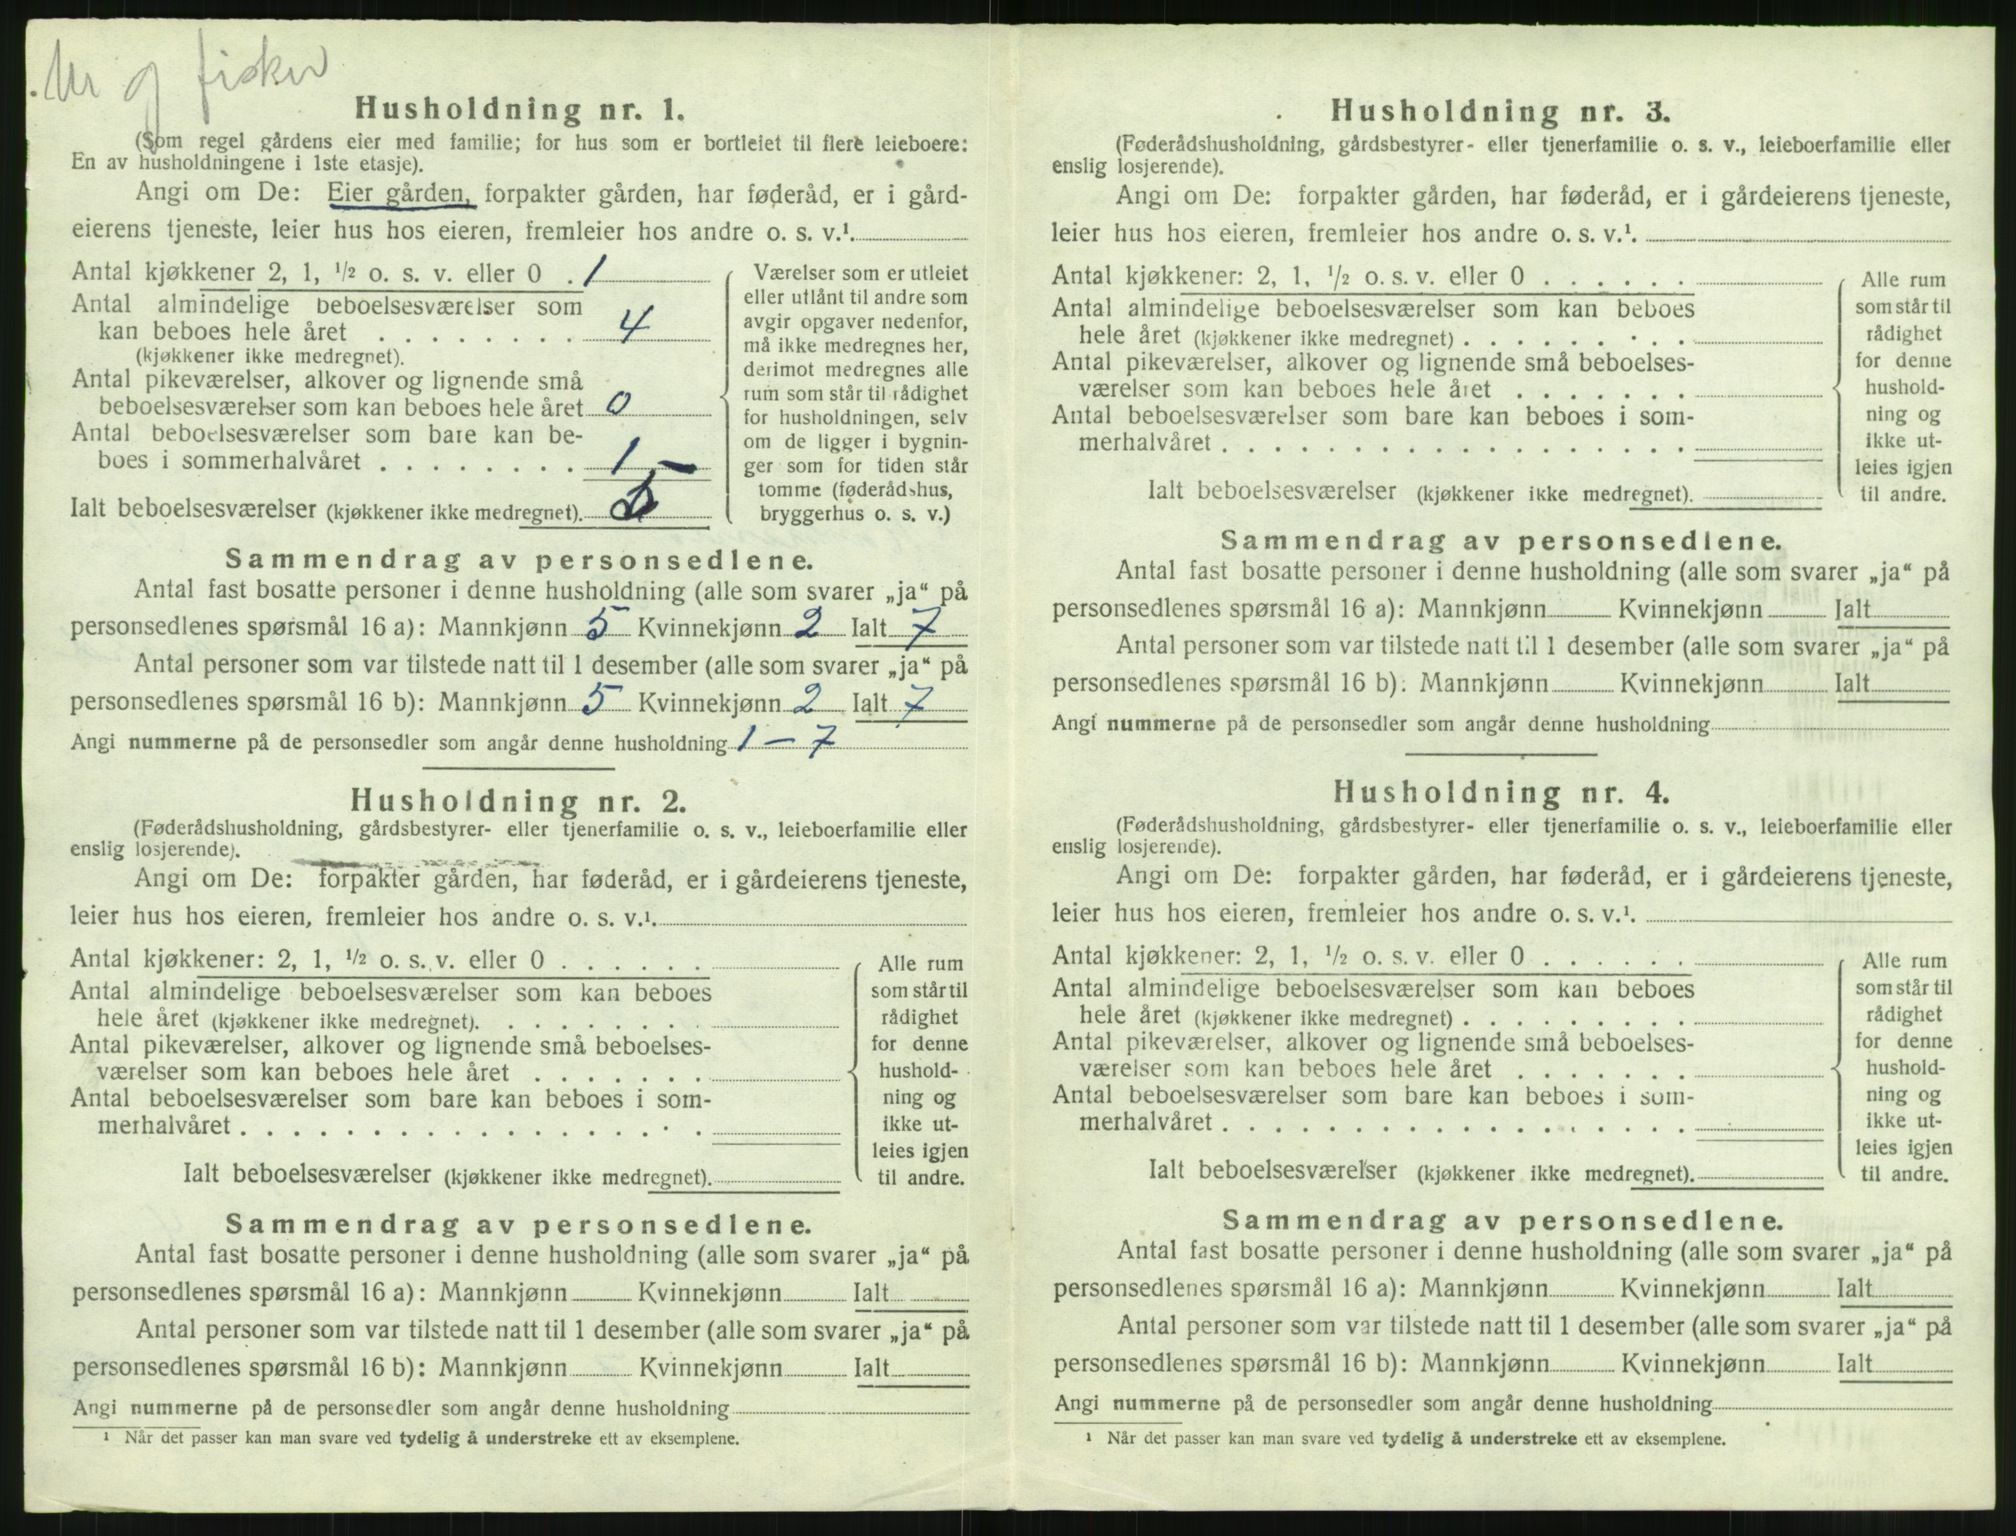 og fisker
Husholdning nr. 1.
(Som regel gårdens eier med familie; for hus som er bortleiet til flere leieboere:
En av husholdningene i 1ste etasje).
Angi om De: Eier gården, forpakter gården, har føderåd, er i gård-
eierens tjeneste, leier hus hos eieren, fremleier hos andre o. s. v.¹.
Antal kjøkkener 2, 1, ½ o. s. v. eller 0 . 1
Antal almindelige beboelsesværelser som
kan beboes hele året . . . . . . . . 4
(kjøkkener ikke medregnet).
Antal pikeværelser, alkover og lignende små
beboelsesværelser som kan beboes hele året 0
Antal beboelsesværelser som bare kan be-
boes i sommerhalvåret . . . . . . . . 1 —
Ialt beboelsesværelser (kjøkkener ikke medregnet).
Værelser som er utleiet
eller utlånt til andre som
avgir opgaver nedenfor,
må ikke medregnes her,
derimot medregnes alle
rum som står til rådighet
for husholdningen, selv
om de ligger i bygnin-
ger som for tiden står
tomme (føderådshus,
bryggerhus o. s. v.)
Sammendrag av personsedlene.
Antal fast bosatte personer i denne husholdning (alle som svarer „ja“ på
personsedlenes spørsmål 16 a): Mannkjønn 5 Kvinnekjønn 2 Ialt 7
Antal personer som var tilstede natt til 1 desember (alle som svarer „ja“ på
personsedlenes spørsmål 16 b): Mannkjønn 5 Kvinnekjønn 2 Ialt 7
Angi nummerne på de personsedler som angår denne husholdning 1 — 7
Husholdning nr. 2.
(Føderådshusholdning, gårdsbestyrer- eller tjenerfamilie o. s. v., leieboerfamilie eller
enslig losjerende).
Angi om De: forpakter gården, har føderåd, er i gårdeierens tjeneste,
leier hus hos eieren, fremleier hos andre o. s. v.¹.
Antal kjøkkener: 2, 1, ½ o. s. v. eller 0 . . . . . .
Antal almindelige beboelsesværelser som kan beboes
hele året (kjøkkener ikke medregnet). . . . . . . . .
Antal pikeværelser, alkover og lignende små beboelses-
værelser som kan beboes hele året . . . . . . .
Antal beboelsesværelser som bare kan beboes i som-
merhalvåret . . . . . . . . . . . . . . . . . .
Ialt beboelsesværelser (kjøkkener ikke medregnet).
Alle rum
som står til
rådighet
for denne
hushold-
ning og
ikke ut-
leies igjen
til andre.
Sammendrag av personsedlene.
Antal fast bosatte personer i denne husholdning (alle som svarer „ja“ på
personsedlenes spørsmål 16 a): Mannkjønn Kvinnekjønn Ialt
Antal personer som var tilstede natt til 1 desember (alle som svarer „ja“ på
personsedlenes spørsmål 16 b): Mannkjønn Kvinnekjønn Ialt
Angi nummerne på de personsedler som angår denne husholdning
¹ Når det passer kan man svare ved tydelig å understreke ett av eksemplene.
Husholdning nr. 3.
(Føderådshusholdning, gårdsbestyrer- eller tjenerfamilie o. s. v., leieboerfamilie eller
enslig losjerende).
Angi om De: forpakter gården, har føderåd, er i gårdeierens tjeneste,
leier hus hos eieren, fremleier hos andre o. s. v.¹.
Antal kjøkkener: 2, 1, ½ o. s. v. eller 0 . . . . . .
Antal almindelige beboelsesværelser som kan beboes
hele året (kjøkkener ikke medregnet) . . . . . . . . .
Antal pikeværelser, alkover og lignende små beboelses-
værelser som kan beboes hele året . . . . . . .
Antal beboelsesværelser som bare kan beboes i som-
merhalvåret . . . . . . . . . . . . . . . . . .
Ialt beboelsesværelser (kjøkkener ikke medregnet).
Alle rum
som står til
rådighet
for denne
hushold-
ning og
ikke ut-
leies igjen
til andre.
Sammendrag av personsedlene.
Antal fast bosatte personer i denne husholdning (alle som svarer „ja“ på
personsedlenes spørsmål 16 a): Mannkjønn Kvinnekjønn Ialt
Antal personer som var tilstede natt til 1 desember (alle som svarer „ja“ på
personsedlenes spørsmål 16 b): Mannkjønn Kvinnekjønn Ialt
Angi nummerne på de personsedler som angår denne husholdning
Husholdning nr. 4.
(Føderådshusholdning, gårdsbestyrer- eller tjenerfamilie o. s. v., leieboerfamilie eller
enslig losjerende).
Angi om De: forpakter gården, har føderåd, er i gårdeierens tjeneste,
leier hus hos eieren, fremleier hos andre o. s. v.¹.
Antal kjøkkener: 2, 1, ½ o. s. v. eller 0 . . . . . .
Antal almindelige beboelsesværelser som kan beboes
hele året (kjøkkener ikke medregnet) . . . . . . . . .
Antal pikeværelser, alkover og lignende små beboelses-
værelser som kan beboes hele året . . . . . . .
Antal beboelsesværelser som bare kan beboes i som-
merhalvåret . . . . . . . . . . . . . . . . . .
Ialt beboelsesværelser (kjøkkener ikke medregnet).
Alle rum
som står til
rådighet
for denne
hushold-
ning og
ikke ut-
leies igjen
til andre.
Sammendrag av personsedlene.
Antal fast bosatte personer i denne husholdning (alle som svarer „ja“ på
personsedlenes spørsmål 16 a): Mannkjønn Kvinnekjønn Ialt
Antal personer som var tilstede natt til 1 desember (alle som svarer „ja“ på
personsedlenes spørsmål 16 b): Mannkjønn Kvinnekjønn Ialt
Angi nummerne på de personsedler som angår denne husholdning
¹ Når det passer kan man svare ved tydelig å understreke ett av eksemplene.